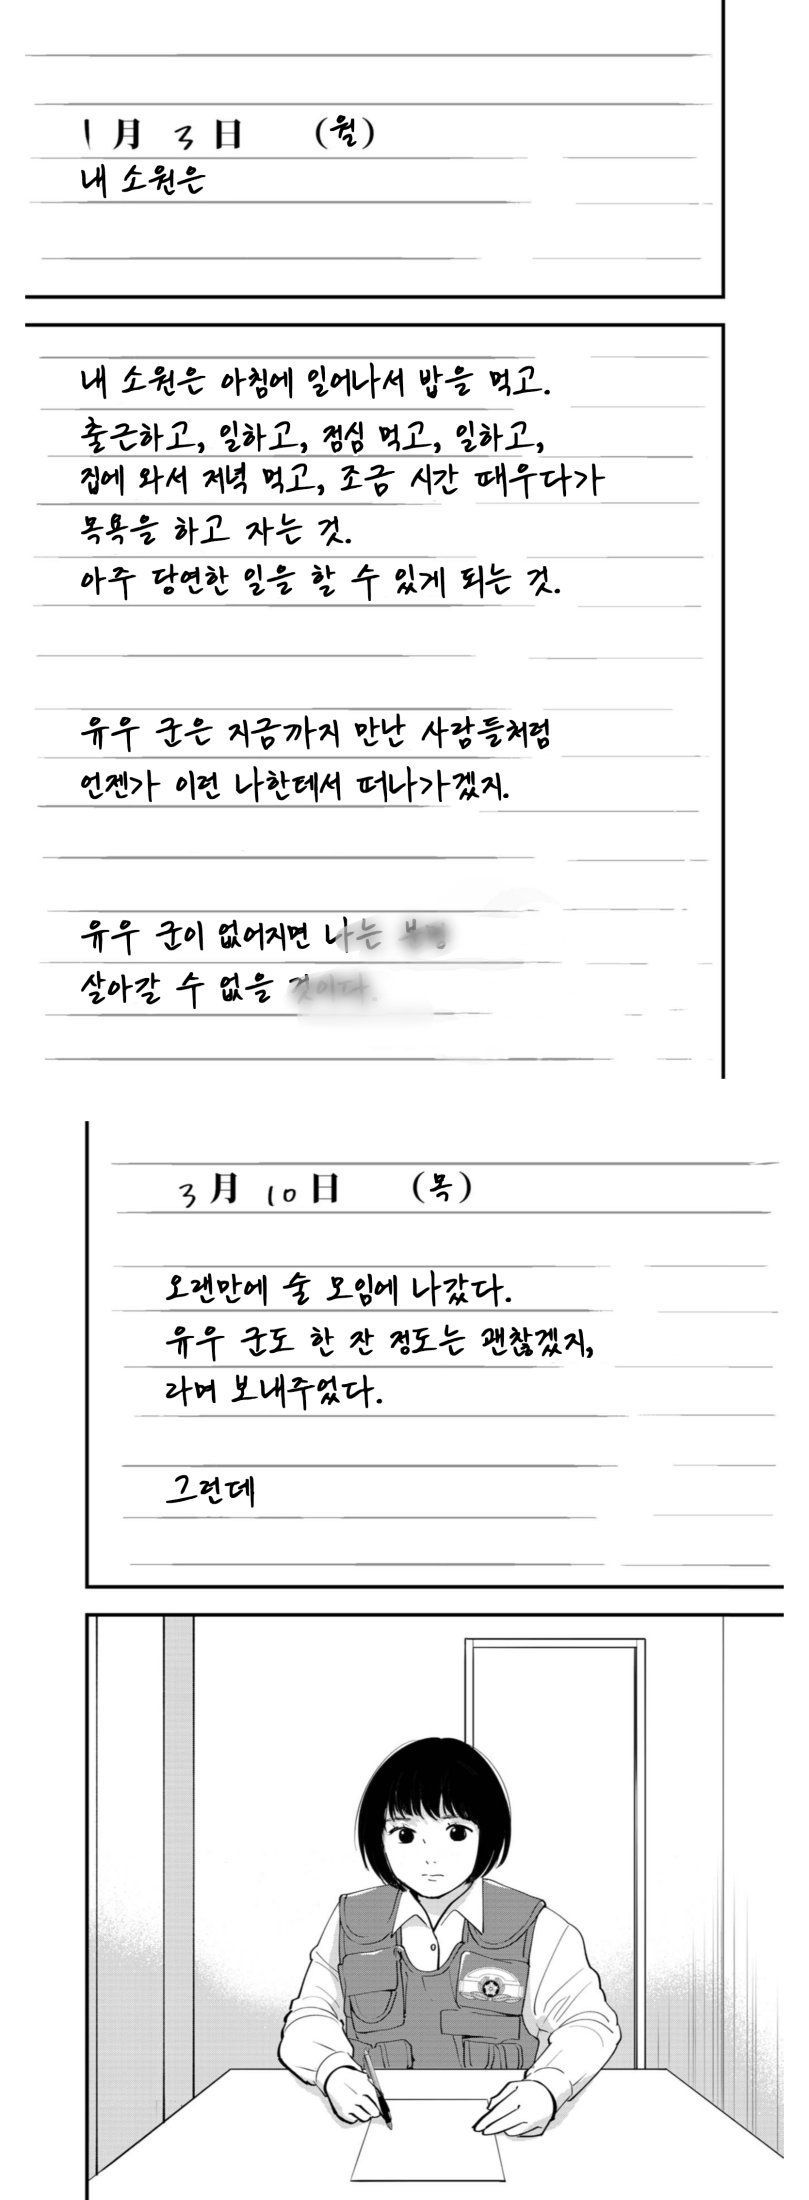 1月 3日 (월)
내 소원은
내 소원은 아침에 일어나서 밥을 먹고.
출근하고, 일하고, 점심 먹고, 일하고,
집에 와서 저녁 먹고, 조금 시간 때우다가
목욕을 하고 자는 것.
아주 당연한 일을 할 수 있게 되는 것.
유우 군은 지금까지 만난 사람들처럼
언젠가 이런 나한테서 떠나가겠지.
유우 군이 없어지면 나는
살아갈 수 없을 것이다.
3月 10日 (목)
오랜만에 술 모임에 나갔다.
유우 군도 한 잔 정도는 괜찮겠지,
라며 보내주었다.
그런데